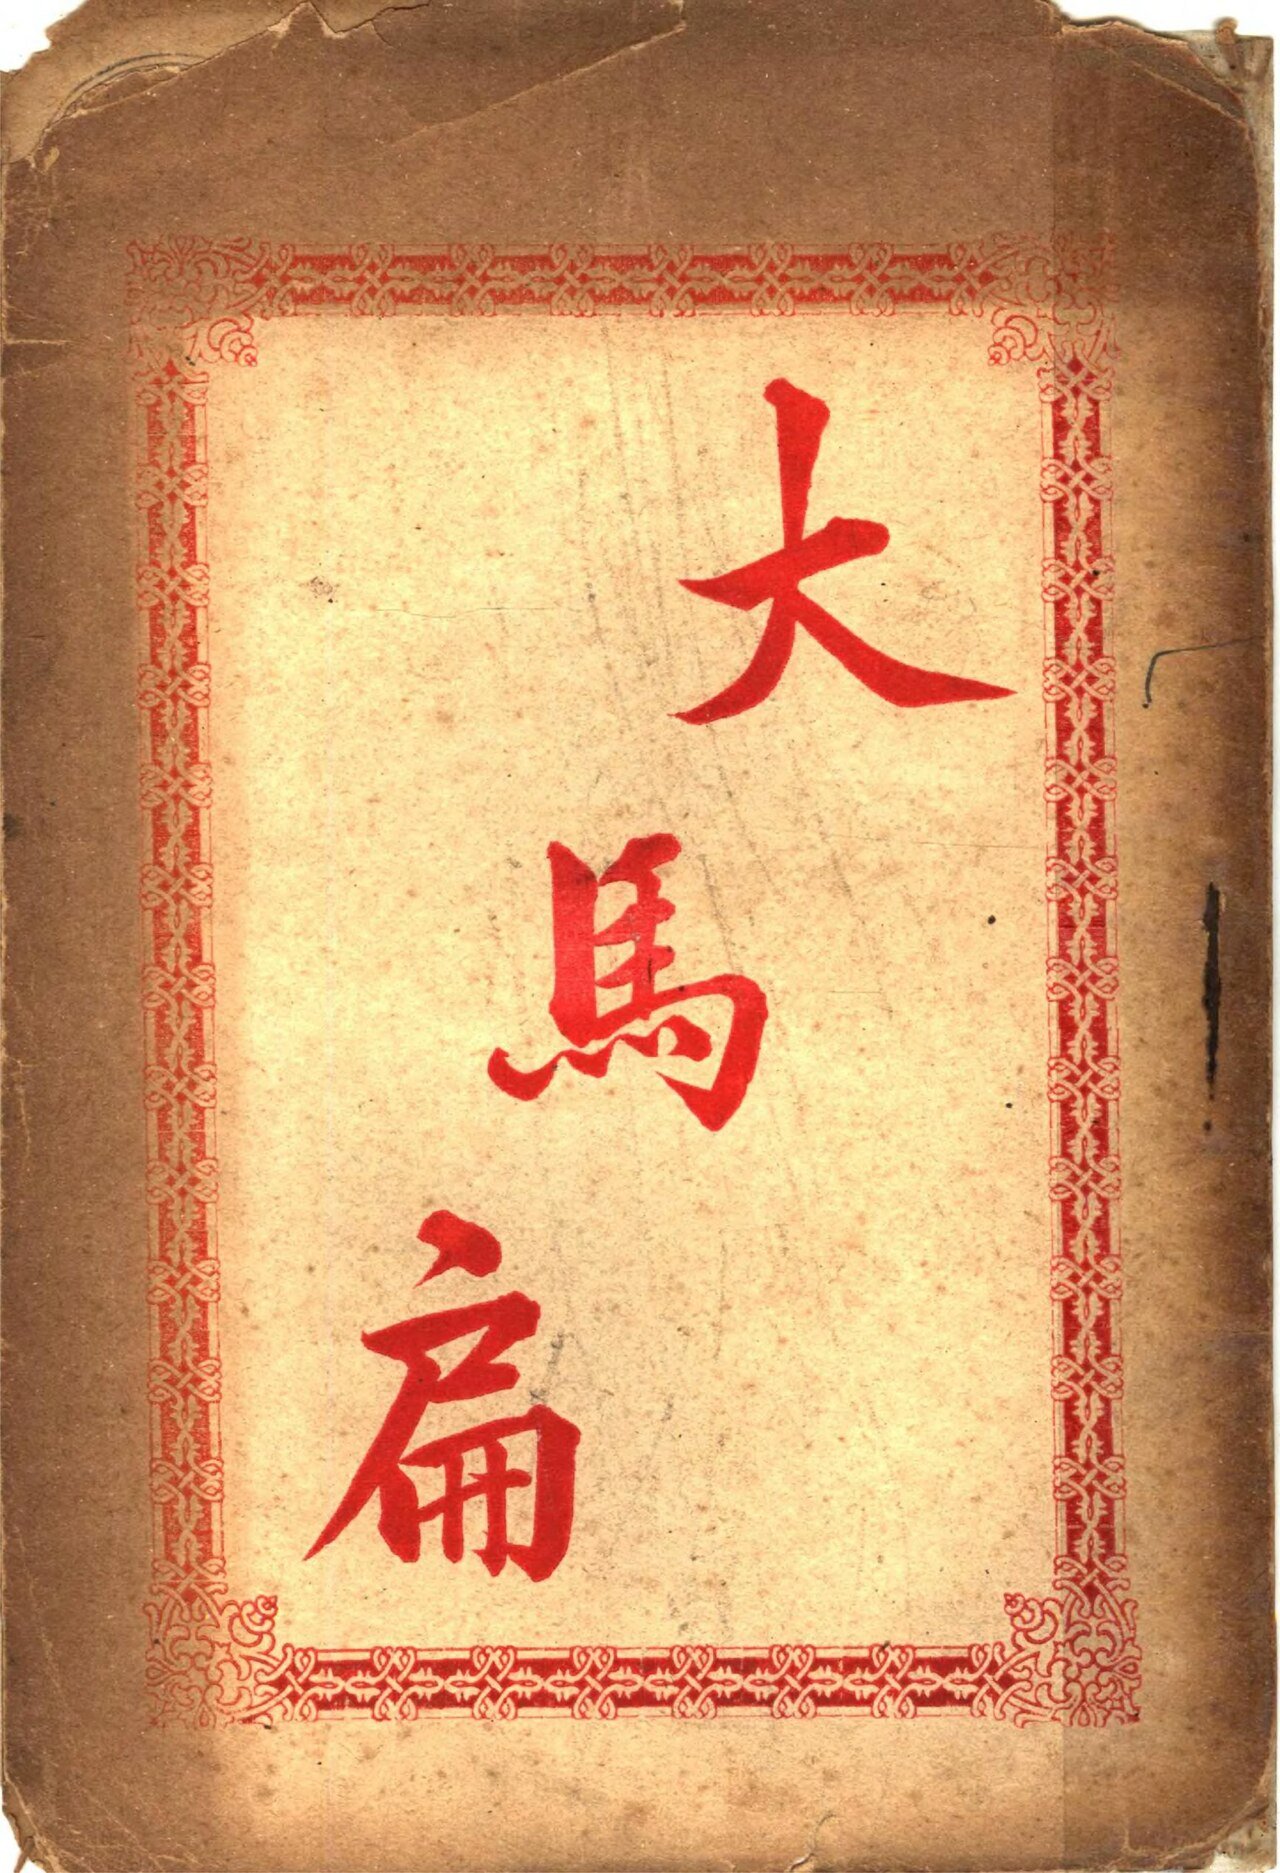 大馬扁